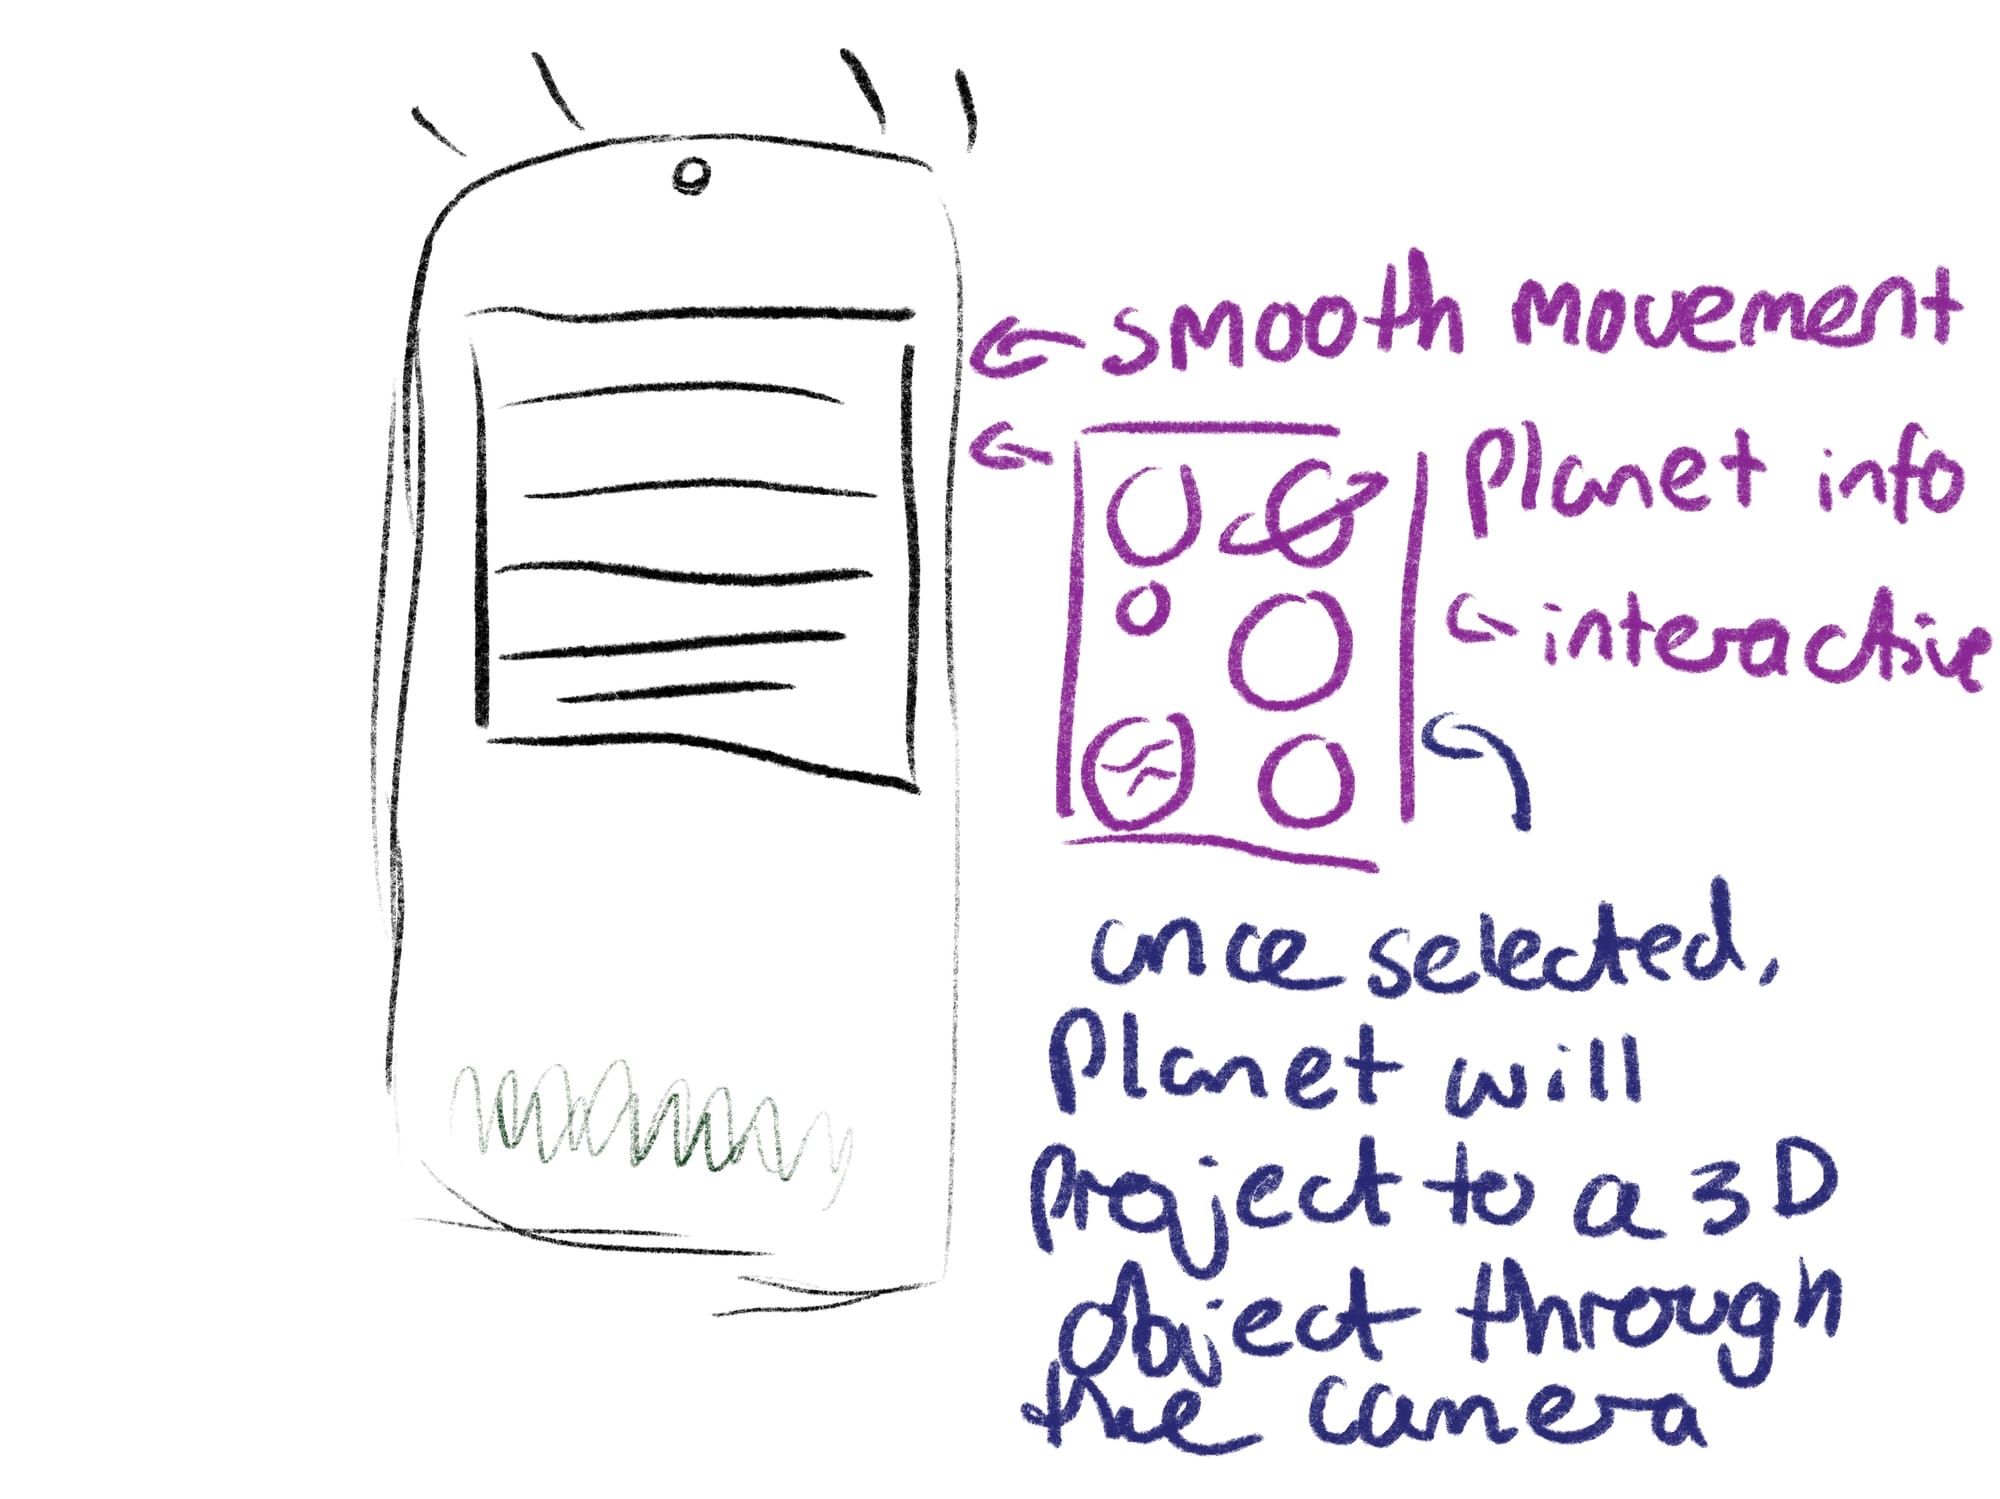 smooth movement
Planet info
interactive
once selected,
Planet will
project to a 3D
object through
the camera